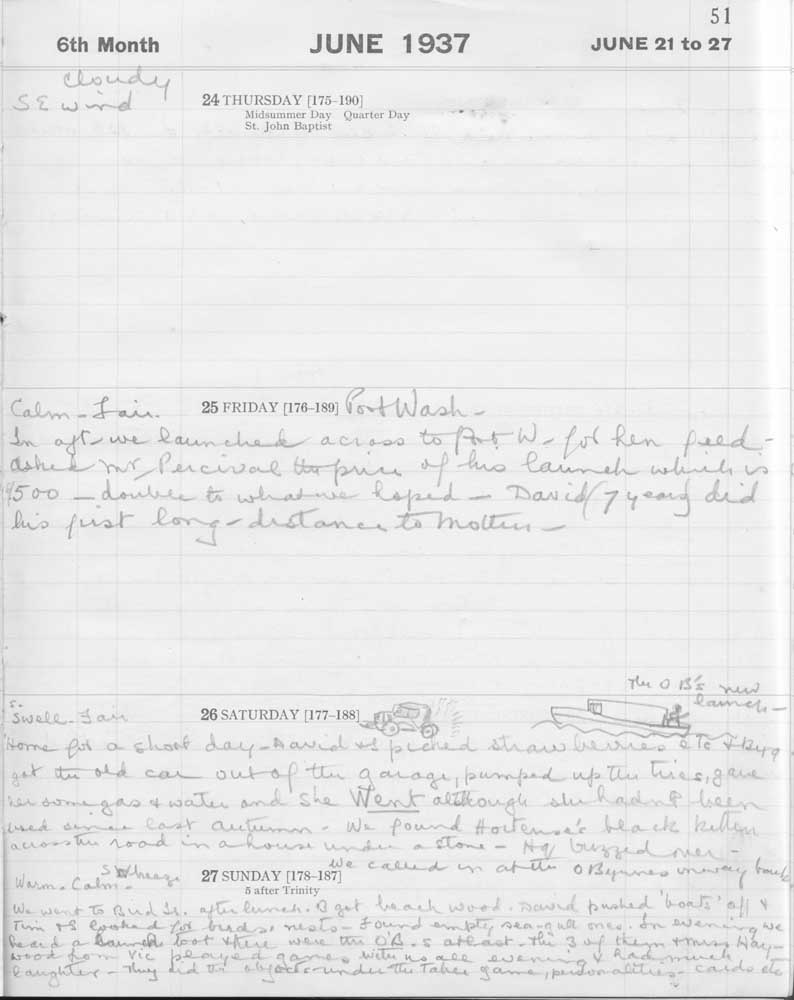 51
6th Month JUNE 1937 JUNE 21 to 27
Cloudy
S E wind
24 THURSDAY [175–190]
Midsummer Day Quarter Day
St. John Baptist
Calm – Fair. 25 FRIDAY [176–189] Port Wash –
In aft – we launched across to Port W – for hen feed –
asked Mr Percival the price of his launch which is
$500 – double to what we hoped – David (7 years) did
his first long-distance to Motten –
The O B's new
launch –
S.
Swell – Fair 26 SATURDAY [177–188]
Home for a short day – David & I picked strawberries etc &
got the old car out of the garage, pumped up the tires, gave
her some gas & water and she Went although she hadn't been
used since last autumn – We found Hortense's black kitten
across the road in a house under a stone – Hq buzzed over –
We called in at the O Byrnes on way back
S W breeze
Warm – Calm – 27 SUNDAY [178–187]
5 after Trinity
We went to Bird Is. after lunch. B got beach wood. David pushed 'boats' off &
Tim & I looked for birds' nests – Found empty sea-gull ones. In evening we
heard a launch toot & there were the O'B.s at last. The 3 of them & Miss Hay-
wood from Vic played games with us all evening & had much
laughter – They did the objects-under-the-table game, personalities – cards etc